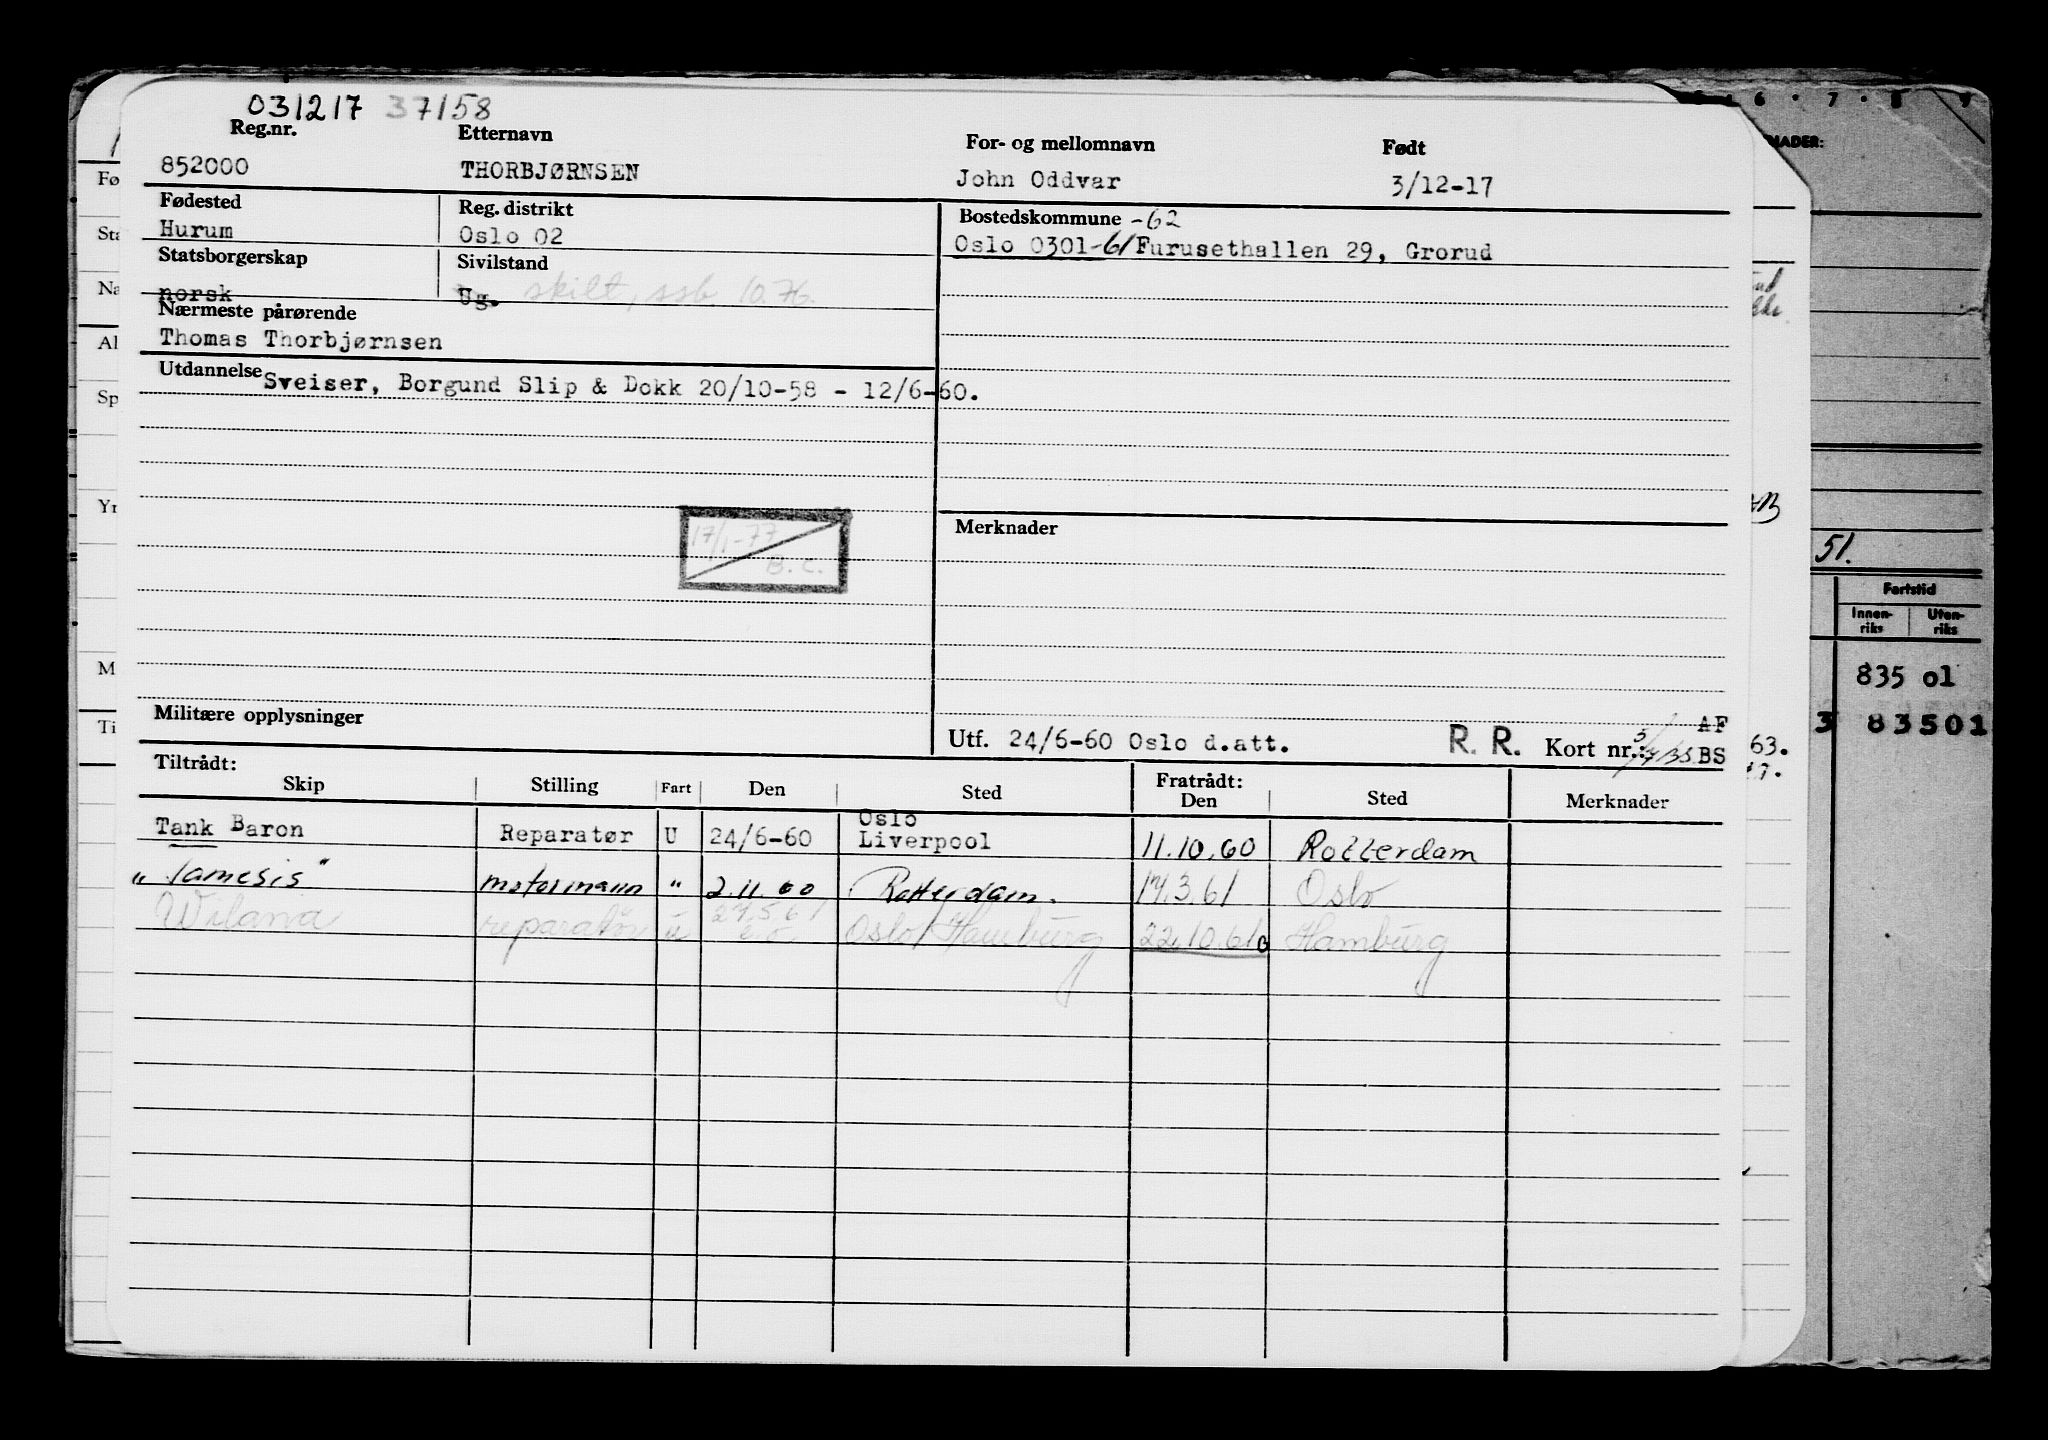 031217 37158
Reg.nr. Etternavn For- og mellomnavn Født
852000 THORBJØRNSEN John Oddvar 3/12-17
Fødested Reg. distrikt Bostedskommune -62
Hurum Oslo 02 Oslo 0301-61 Furusethallen 29, Grorud
Statsborgerskap Sivilstand
norsk Ug. skilt, ssb 10.76.
Nærmeste pårørende
Thomas Thorbjørnsen
Utdannelse Sveiser, Borgund Slip & Dokk 20/10-58 - 12/6-60.
17/1-77
B.C.
Merknader
Militære opplysninger
AF
Utf. 24/6-60 Oslo d.att. R. R. Kort nr.: BS
Tiltrådt: Fratrådt:
Skip Stilling Fart Den Sted Den Sted Merknader
Oslo
Tank Baron Reparatør U 24/6-60 Liverpool 11.10.60 Rotterdam
"Tamesis" motormann " 2.11.60 Rotterdam. 17.3.61 Oslo
Wilana reparatør u 27.5.61 Oslo/Hamburg 22.10.61 Hamburg
Fø
Sta
Na
Al
Sp
Yr
M
Ti
6 7 8 9
NADER:
51.
Fartstid
Innen-
riks
Uten-
riks
835 01
3 83501
63.